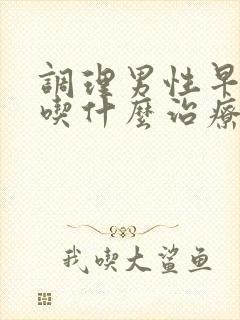 調理男性早
喫什麼治療
我喫大鯊鱼